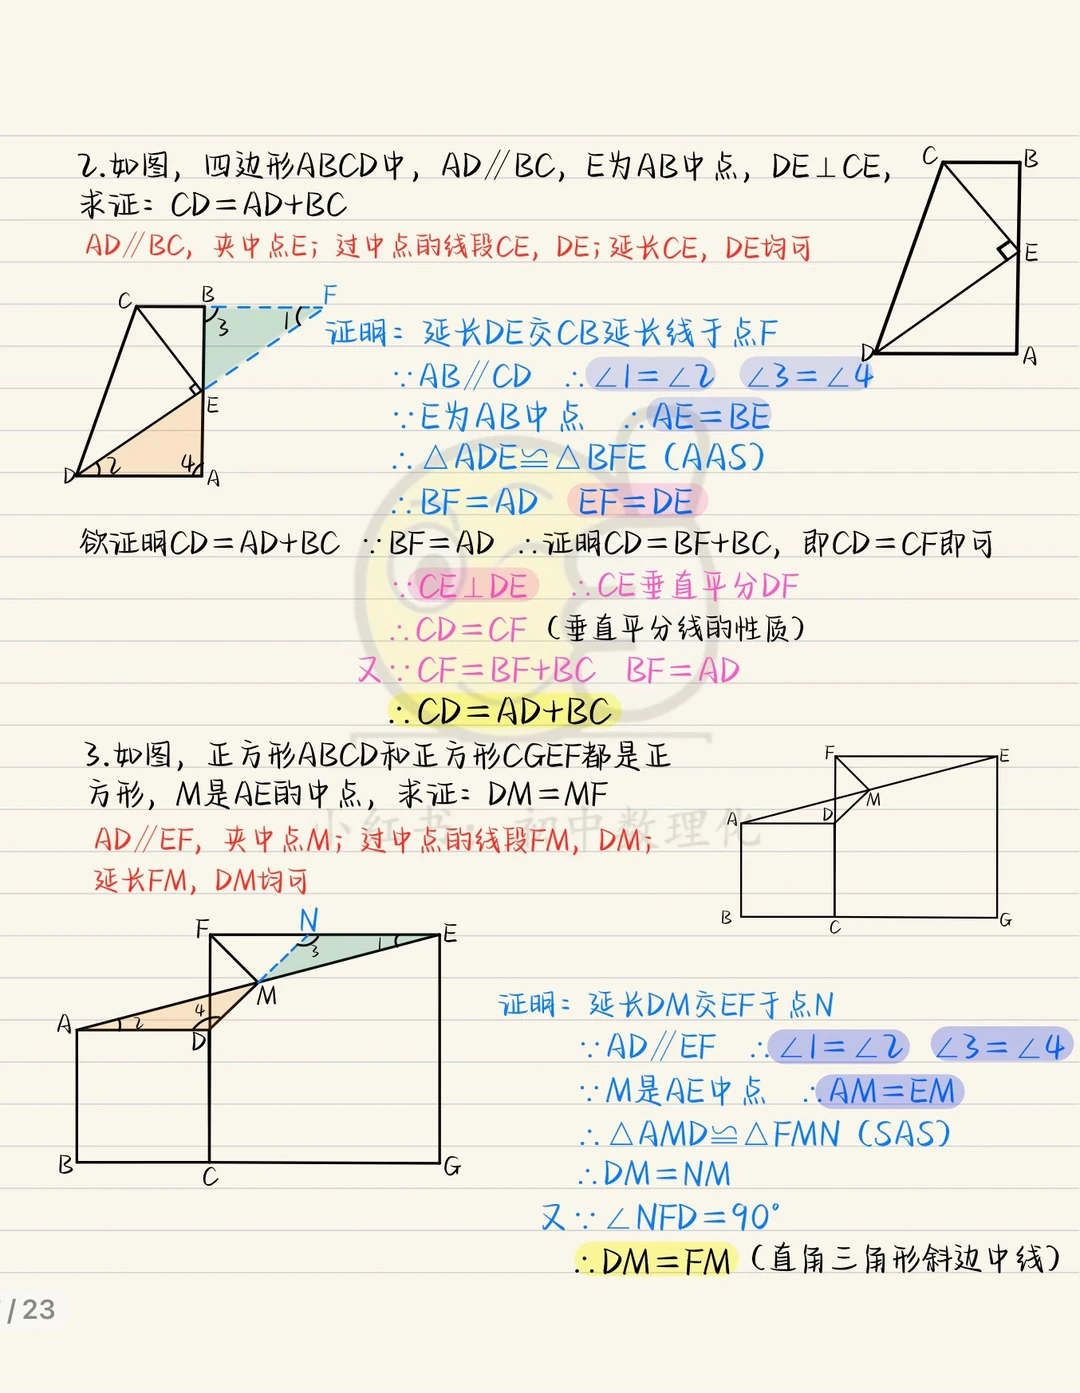 2.如图，四边形ABCD中，AD∥BC，E为AB中点，DE⊥CE，
求证：CD=AD+BC
AD∥BC，夹中点E；过中点的线段CE，DE；延长CE，DE均可
C B
E
D A
C B F
3 1
E
D 2 4 A
证明：延长DE交CB延长线于点F
∵AB∥CD ∴∠1=∠2 ∠3=∠4
∵E为AB中点 ∴AE=BE
∴△ADE≌△BFE（AAS）
∴BF=AD EF=DE
欲证明CD=AD+BC ∵BF=AD ∴证明CD=BF+BC，即CD=CF即可
∵CE⊥DE ∴CE垂直平分DF
∴CD=CF（垂直平分线的性质）
又∵CF=BF+BC BF=AD
∴CD=AD+BC
3.如图，正方形ABCD和正方形CGEF都是正
方形，M是AE的中点，求证：DM=MF
小红书：初中数理化
AD∥EF，夹中点M；过中点的线段FM，DM；
延长FM，DM均可
F E
M
A D
B C G
F N E
3 1
M
A 2 4 D
B C G
证明：延长DM交EF于点N
∵AD∥EF ∴∠1=∠2 ∠3=∠4
∵M是AE中点 ∴AM=EM
∴△AMD≌△FMN（SAS）
∴DM=NM
又∵∠NFD=90°
∴DM=FM（直角三角形斜边中线）
/23